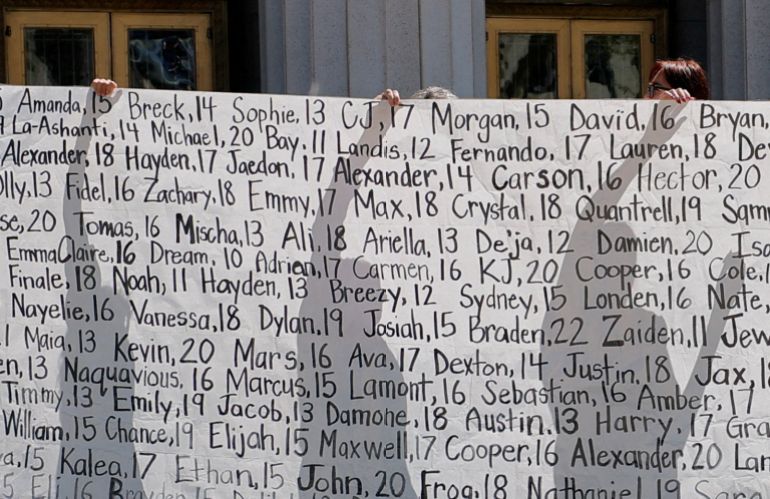 Amanda, 15 Breck, 14 Sophie, 13 CJ, 17 Morgan, 15 David, 16 Bryan,
La-Ashanti, 14 Michael, 20 Bay, 11 Landis, 12 Fernando, 17 Lauren, 18 De
Alexander, 18 Hayden, 17 Jaedon, 17 Alexander, 14 Carson, 16 Hector, 20
lly, 13 Fidel, 16 Zachary, 18 Emmy, 17 Max, 18 Crystal, 18 Quantrell, 19 Sam
se, 20 Tomas, 16 Mischa, 13 Ali, 18 Ariella, 13 De'ja, 12 Damien, 20 Isa
EmmaClaire, 16 Dream, 10 Adrien, 17 Carmen, 16 KJ, 20 Cooper, 16 Cole, 1
Finale, 18 Noah, 11 Hayden, 13 Breezy, 12 Sydney, 15 Londen, 16 Nate,
Nayelie, 16 Vanessa, 18 Dylan, 19 Josiah, 15 Braden, 22 Zaiden, 11 Jew
1 Maia, 13 Kevin, 20 Mars, 16 Ava, 17 Dexton, 14 Justin, 18 Jax, 1
en, 13 Naquavious, 16 Marcus, 15 Lamont, 16 Sebastian, 16 Amber, 17
Timmy, 13 Emily, 19 Jacob, 13 Damone, 18 Austin, 13 Harry, 17 Gra
William, 15 Chance, 19 Elijah, 15 Maxwell, 17 Cooper, 16 Alexander, 20 Lan
a, 15 Kalea, 17 Ethan, 15 John, 20 Frog, 18 Nathaniel, 19
5 Eli, 16 Brayden